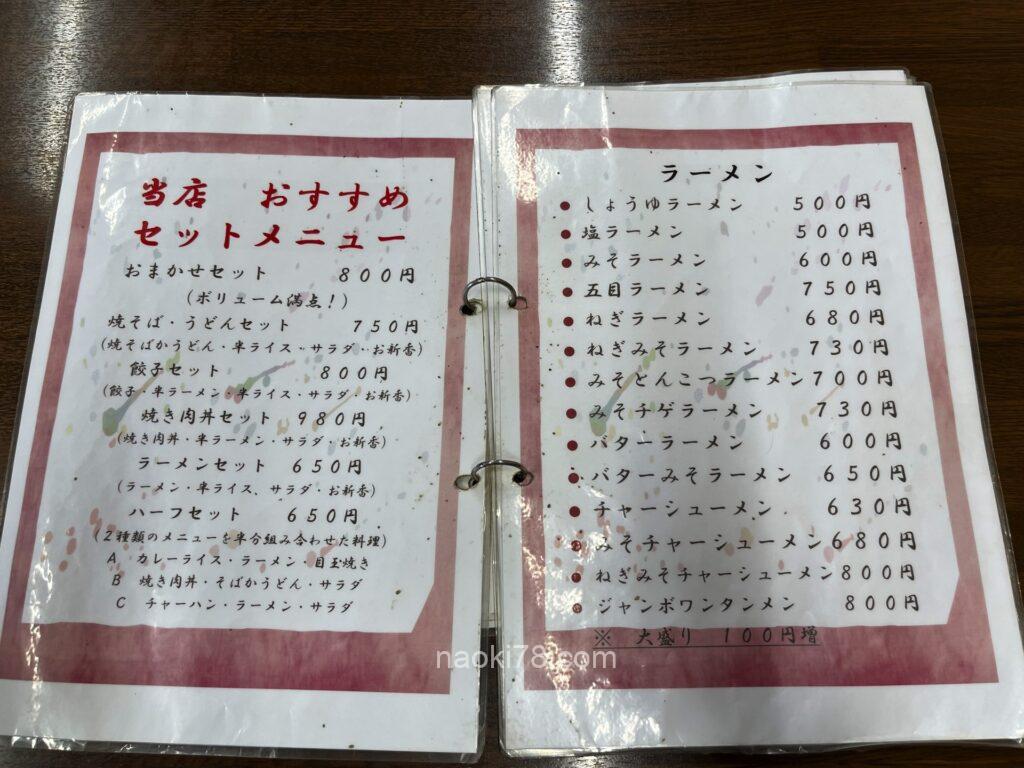 当店　おすすめ
セットメニュー
おまかせセット　800円
(ボリューム満点!)
焼そば・うどんセット　750円
(焼そばかうどん・半ライス・サラダ・お新香)
餃子セット　800円
(餃子・半ラーメン・半ライス・サラダ・お新香)
焼き肉丼セット　980円
(焼き肉丼・半ラーメン・サラダ・お新香)
ラーメンセット　650円
(ラーメン・半ライス、サラダ・お新香)
ハーフセット　650円
(2種類のメニューを半分組み合わせた料理)
A　カレーライス・ラーメン・目玉焼き
B　焼き肉丼・そばかうどん・サラダ
C　チャーハン・ラーメン・サラダ
ラーメン
●しょうゆラーメン　500円
●塩ラーメン　500円
●みそラーメン　600円
●五目ラーメン　750円
●ねぎラーメン　680円
●ねぎみそラーメン　730円
●みそとんこつラーメン 700円
●みそチゲラーメン　730円
●バターラーメン　600円
●バターみそラーメン　650円
●チャーシューメン　630円
●みそチャーシューメン 680円
●ねぎみそチャーシューメン 800円
●ジャンボワンタンメン　800円
※　大盛り　100円増
naoki78.com